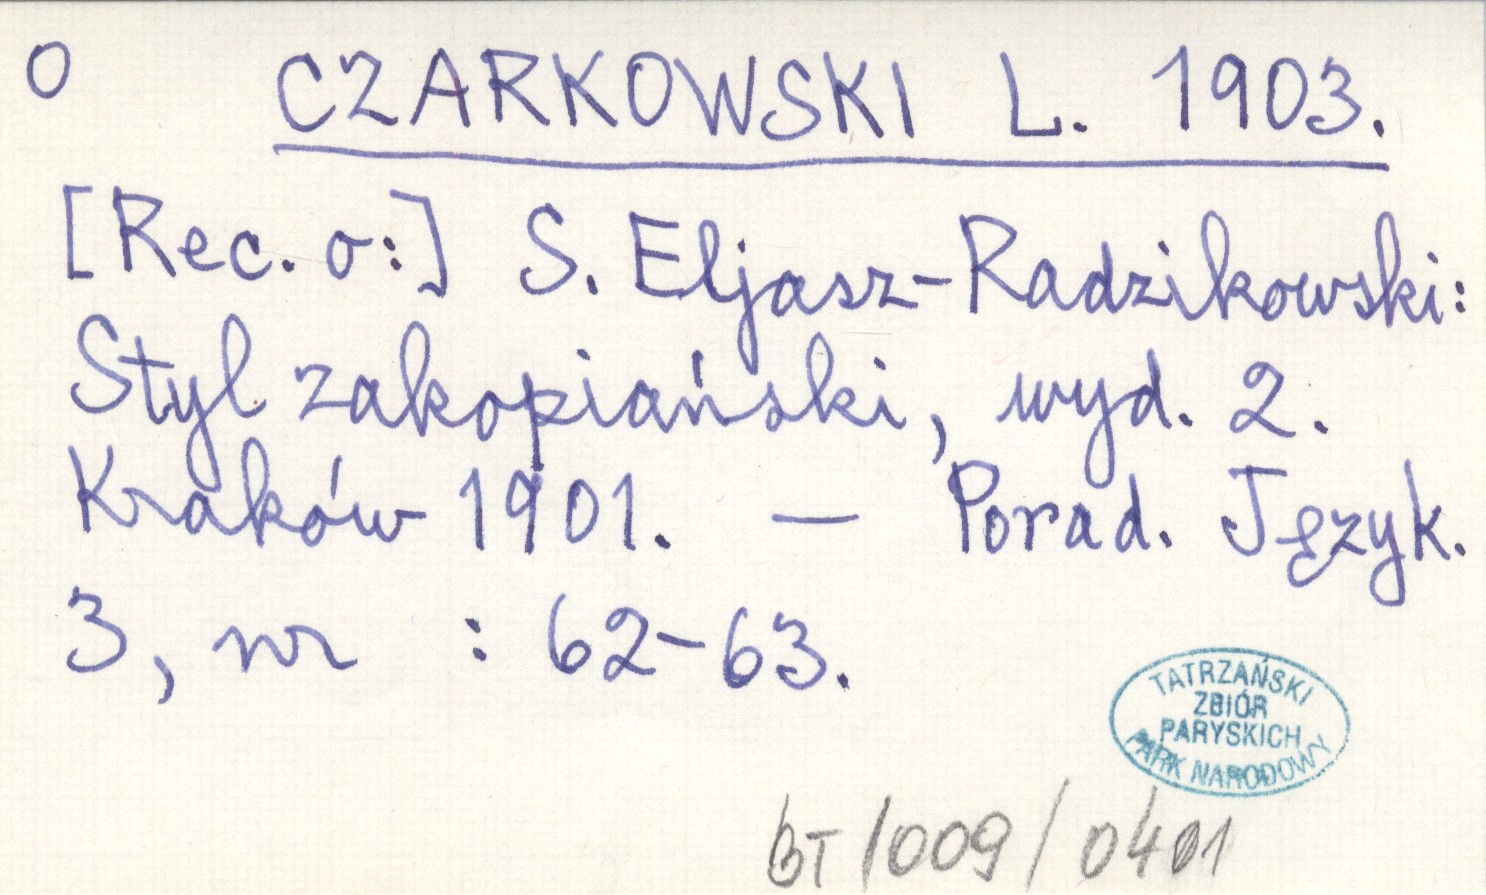 O CZARKOWSKI L. 1903.
[Rec. o:] S. Eljasz-Radzikowski:
Styl zakopiański, wyd. 2.
Kraków 1901. — Porad. Język.
3, nr : 62-63.
TATRZAŃSKI
ZBIÓR
PARYSKICH
PARK NARODOWY
BT/009/0401